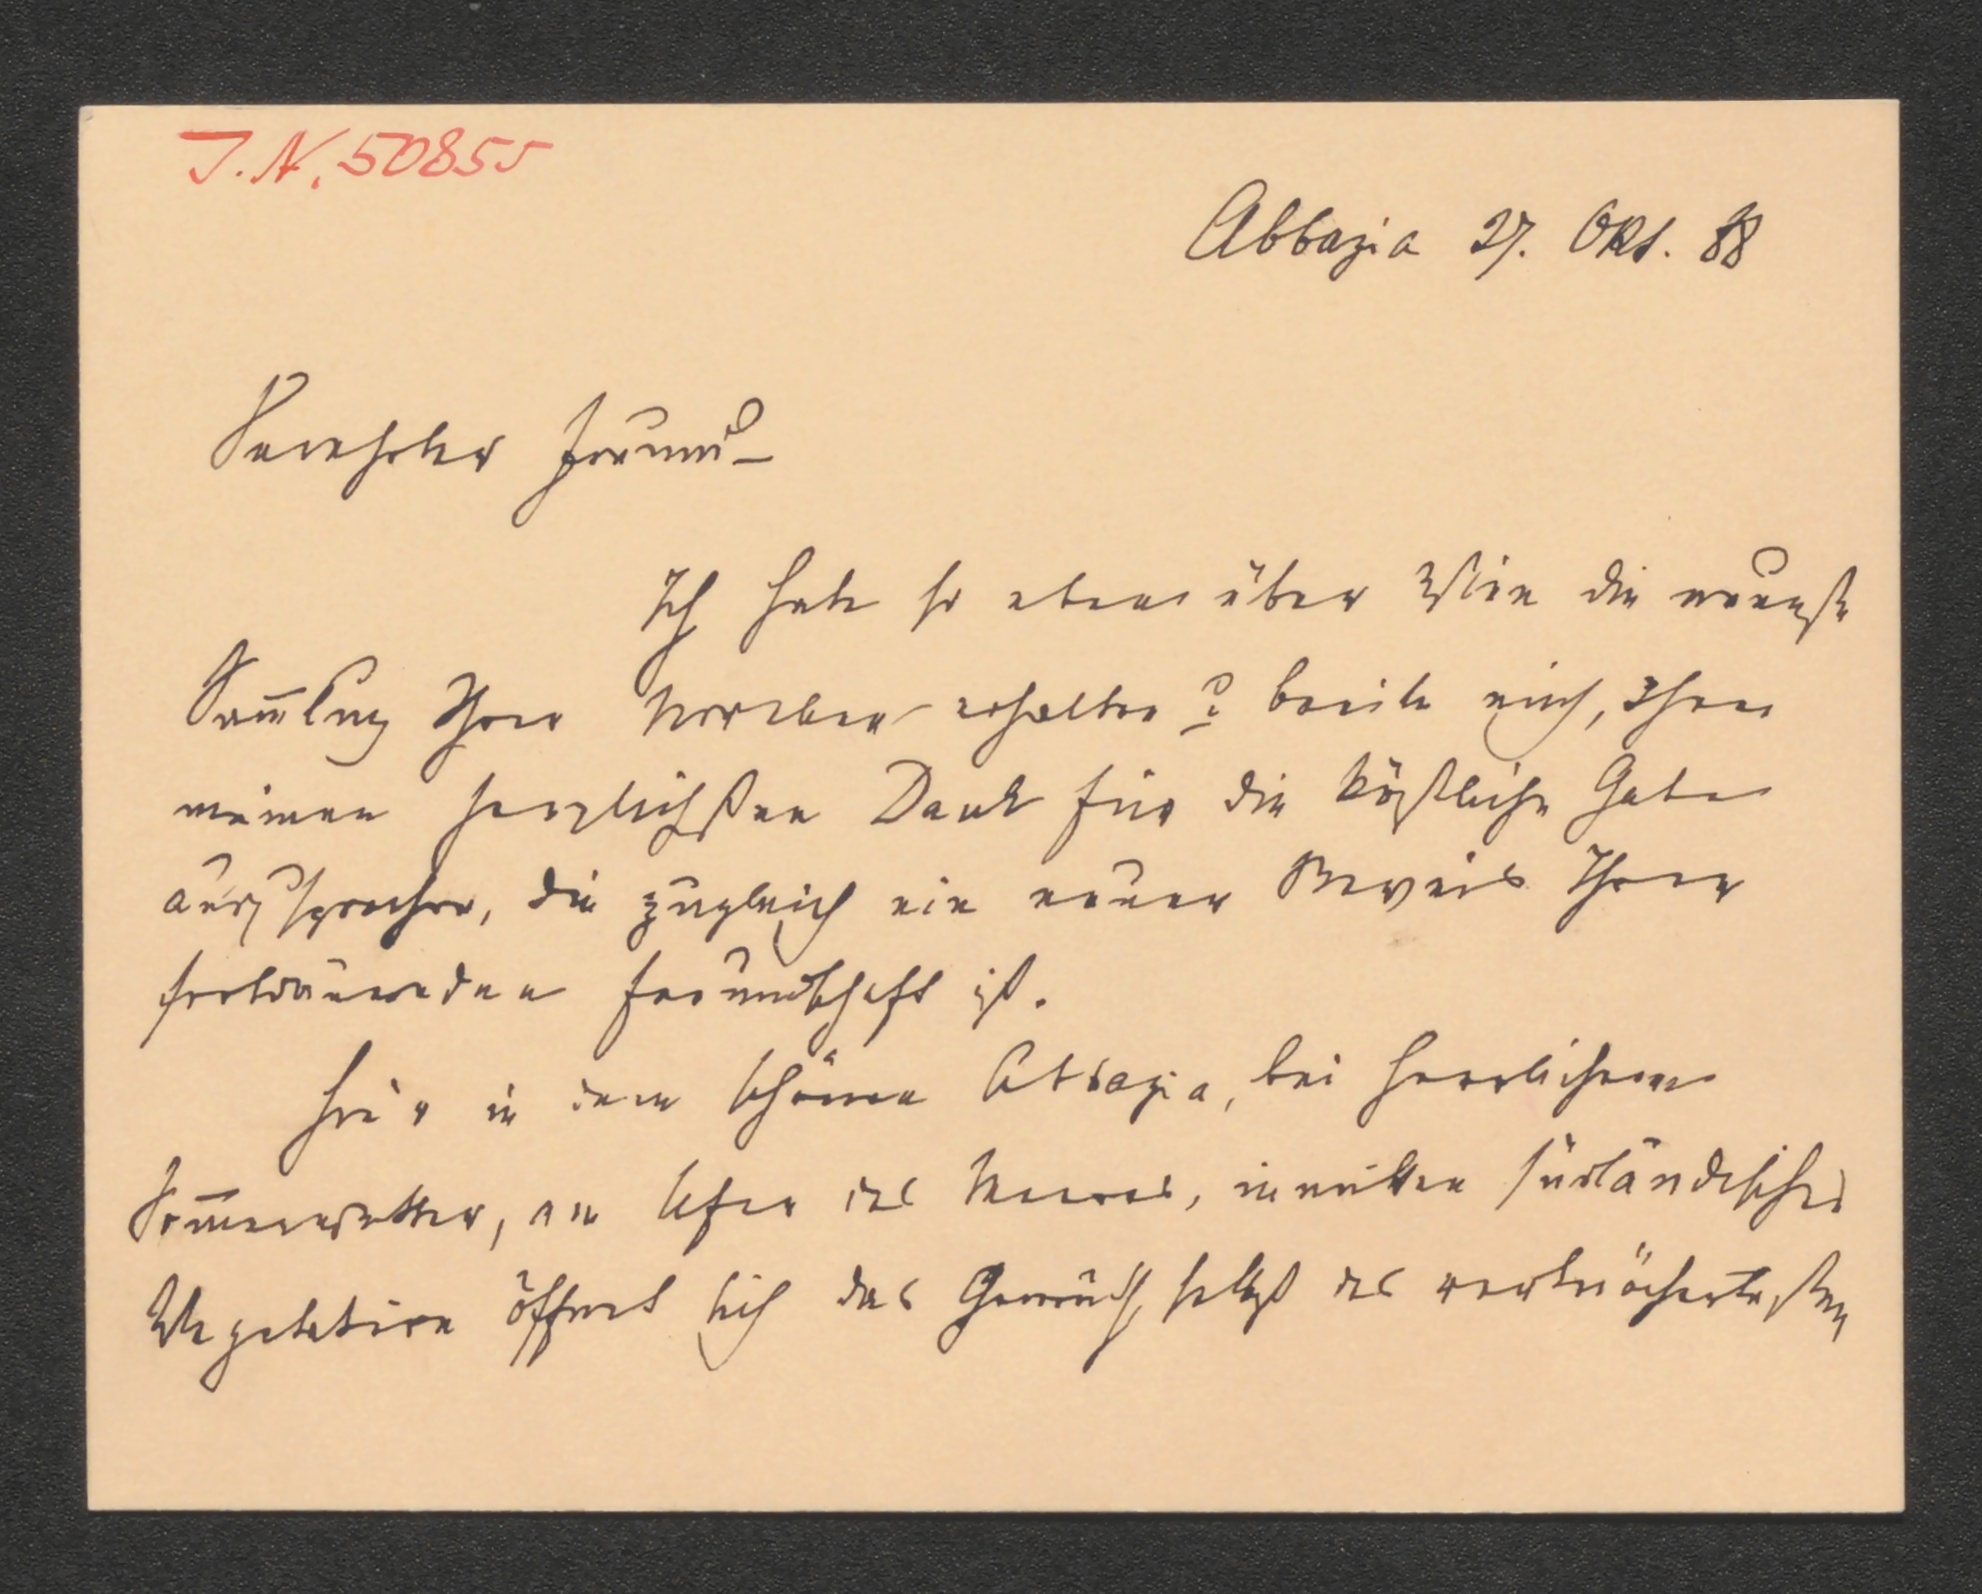 J. N. 50855
Abbazia 27. Okt. 88
Verehrter Freund –
Ich habe so eben über Wien die neueste
Sam̅lung Ihrer Novellen erhalten & beeile mich, Ihnen
meinen herzlichsten Dank für die köstliche Gabe
auszusprechen, die zugleich ein neuer Beweis Ihrer
fortdauernden Freundschaft ist.
Hier in dem schönen Abbazia, bei herrlichem
Som̅erwetter, am Ufer des Meeres, inmitten südländischer
Vegetation öffnet sich das Gemüth selbst des verknöchertesten